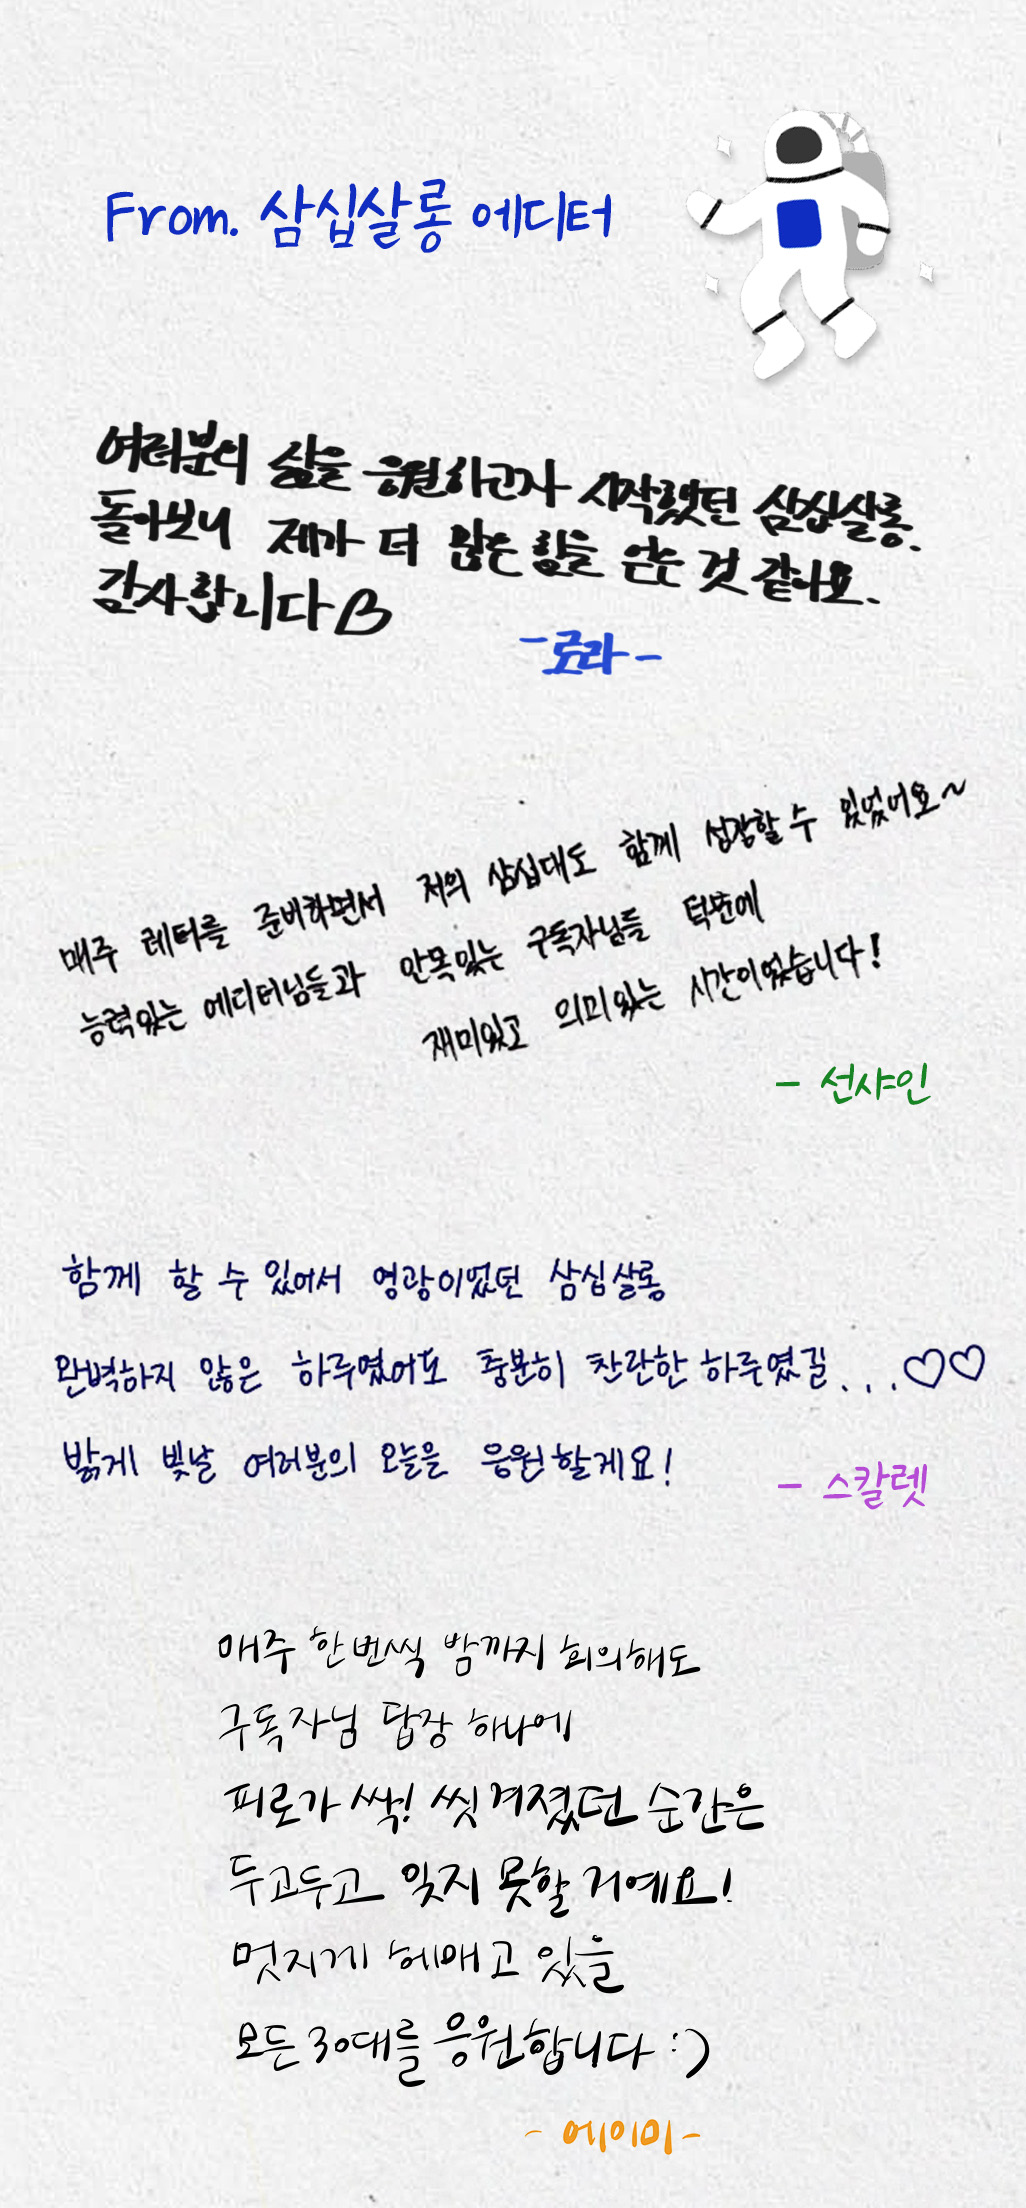 From. 삼십살롱 에디터
여러분의 삶을 응원하고자 시작했던 삼십살롱.
돌아보니 제가 더 많은 힘을 얻은 것 같아요.
감사합니다
-로라-
매주 레터를 준비하면서 저의 삼십대도 함께 성장할 수 있었어요~
능력있는 에디터님들과 안목있는 구독자님들 덕분에
재미있고 의미있는 시간이었습니다!
- 선샤인
함께 할 수 있어서 영광이었던 삼십살롱
완벽하지 않은 하루였어도 충분히 찬란한 하루였길...♡♡
밝게 빛날 여러분의 오늘을 응원할게요!
- 스칼렛
매주 한번씩 밤까지 회의해도
구독자님 답장 하나에
피로가 싹! 씻겨졌던 순간은
두고두고 잊지 못할 거예요!
멋지게 헤매고 있을
모든 30대를 응원합니다 :)
- 에이미-